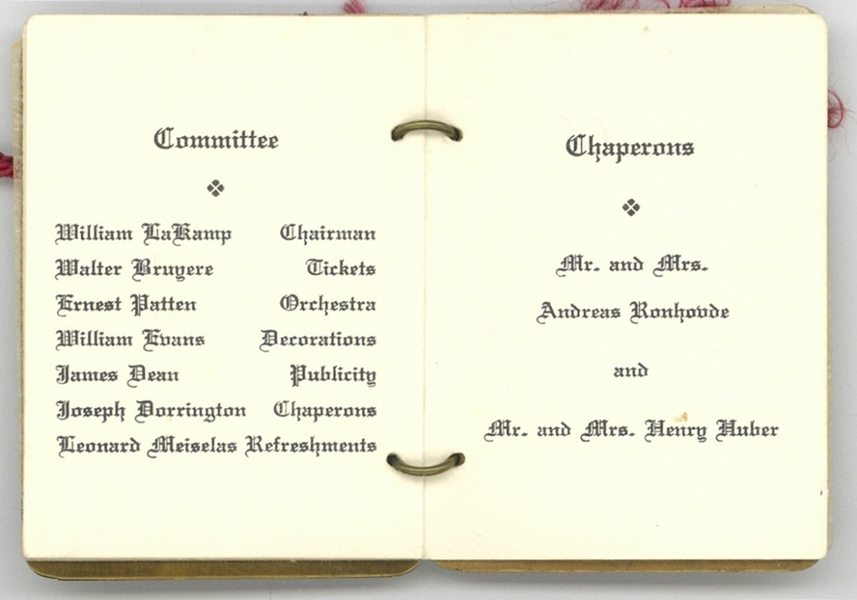 Committee
William LaKamp Chairman
Walter Bruyere Tickets
Ernest Patten Orchestra
William Evans Decorations
James Dean Publicity
Joseph Dorrington Chaperons
Leonard Meiselas Refreshments
Chaperons
Mr. and Mrs.
Andreas Ronhovde
and
Mr. and Mrs. Henry Huber